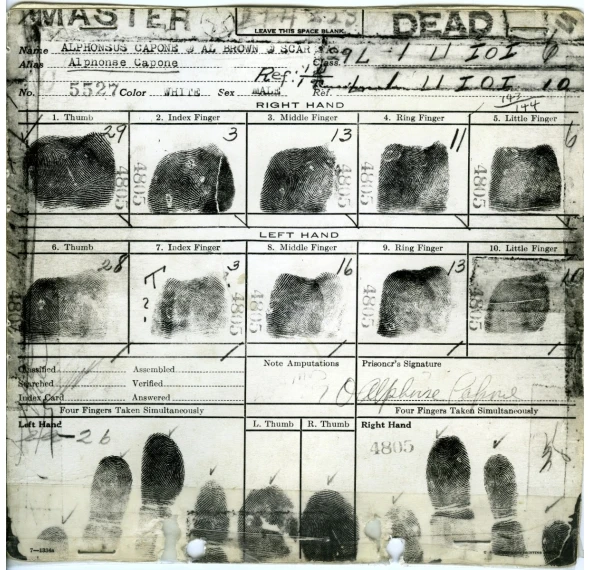 MASTER DEAD
LEAVE THIS SPACE BLANK
Name ALPHONSUS CAPONE AL BROWN SCAR
Alias Alphonse Capone Class.
Ref:
No. 5527 Color WHITE Sex MALE Ref.
RIGHT HAND
1. Thumb 2. Index Finger 3. Middle Finger 4. Ring Finger 5. Little Finger
29 3 13 11 6
4805 4805 4805 4805 4805
LEFT HAND
6. Thumb 7. Index Finger 8. Middle Finger 9. Ring Finger 10. Little Finger
28 T ? 3 16 13
4805 4805 4805 4805 4805
Classified Assembled Note Amputations Prisoner's Signature
Searched Verified
Index Card Answered Alphonse Capone
Four Fingers Taken Simultaneously Four Fingers Taken Simultaneously
Left Hand L. Thumb R. Thumb Right Hand
4805